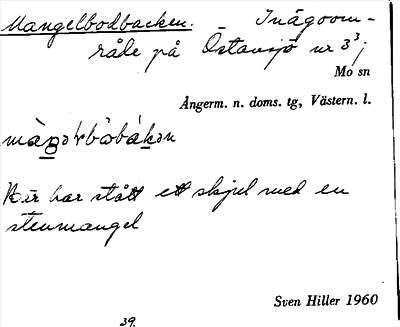 Mangelbodbacken. Inägoom-
råde på Östansjö nr 3³;
Mo sn
Ångerm. n. doms. tg, Västern. l.
Här har stått ett skjul med en
stenmangel
Sven Hiller 1960
39.